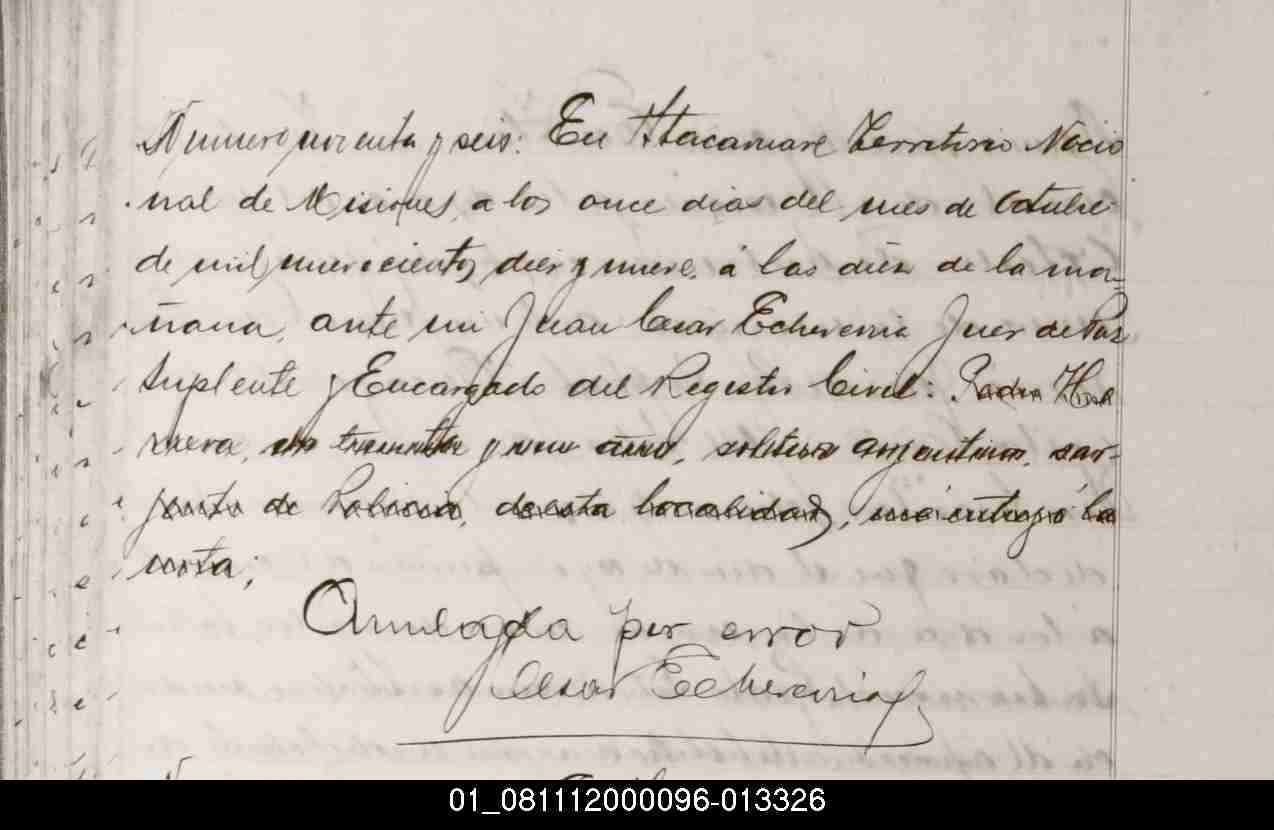 Numero cuarenta y seis: En Itacaruaré Territorio Nacio
nal de Misiones, a los once dias del mes de Octubre
de mil, nuevecientos diez y nueve, á las diez de la ma-
ñana, ante mi Juan Cesar Echeverria Juez de Paz
Suplente y Encargado del Registro Civil: Pedro
años, soltero argentino, sar-
jento de Policia, de esta localidad,
nota;
Anulada por error
J Cesar Echeverria
01_081112000096-013326